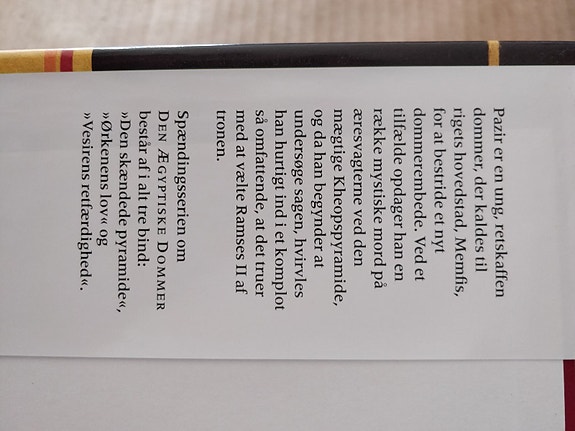 Pazir er en ung, retskaffen
dommer, der kaldes til
rigets hovedstad, Memfis,
for at bestride et nyt
dommerembede. Ved et
tilfælde opdager han en
række mystiske mord på
æresvagterne ved den
mægtige Kheopspyramide,
og da han begynder at
undersøge sagen, hvirvles
han hurtigt ind i et komplot
så omfattende, at det truer
med at vælte Ramses II af
tronen.
Spændingsserien om
DEN ÆGYPTISKE DOMMER
består af i alt tre bind:
»Den skændede pyramide«,
»Ørkenens lov« og
»Vesirens retfærdighed«.